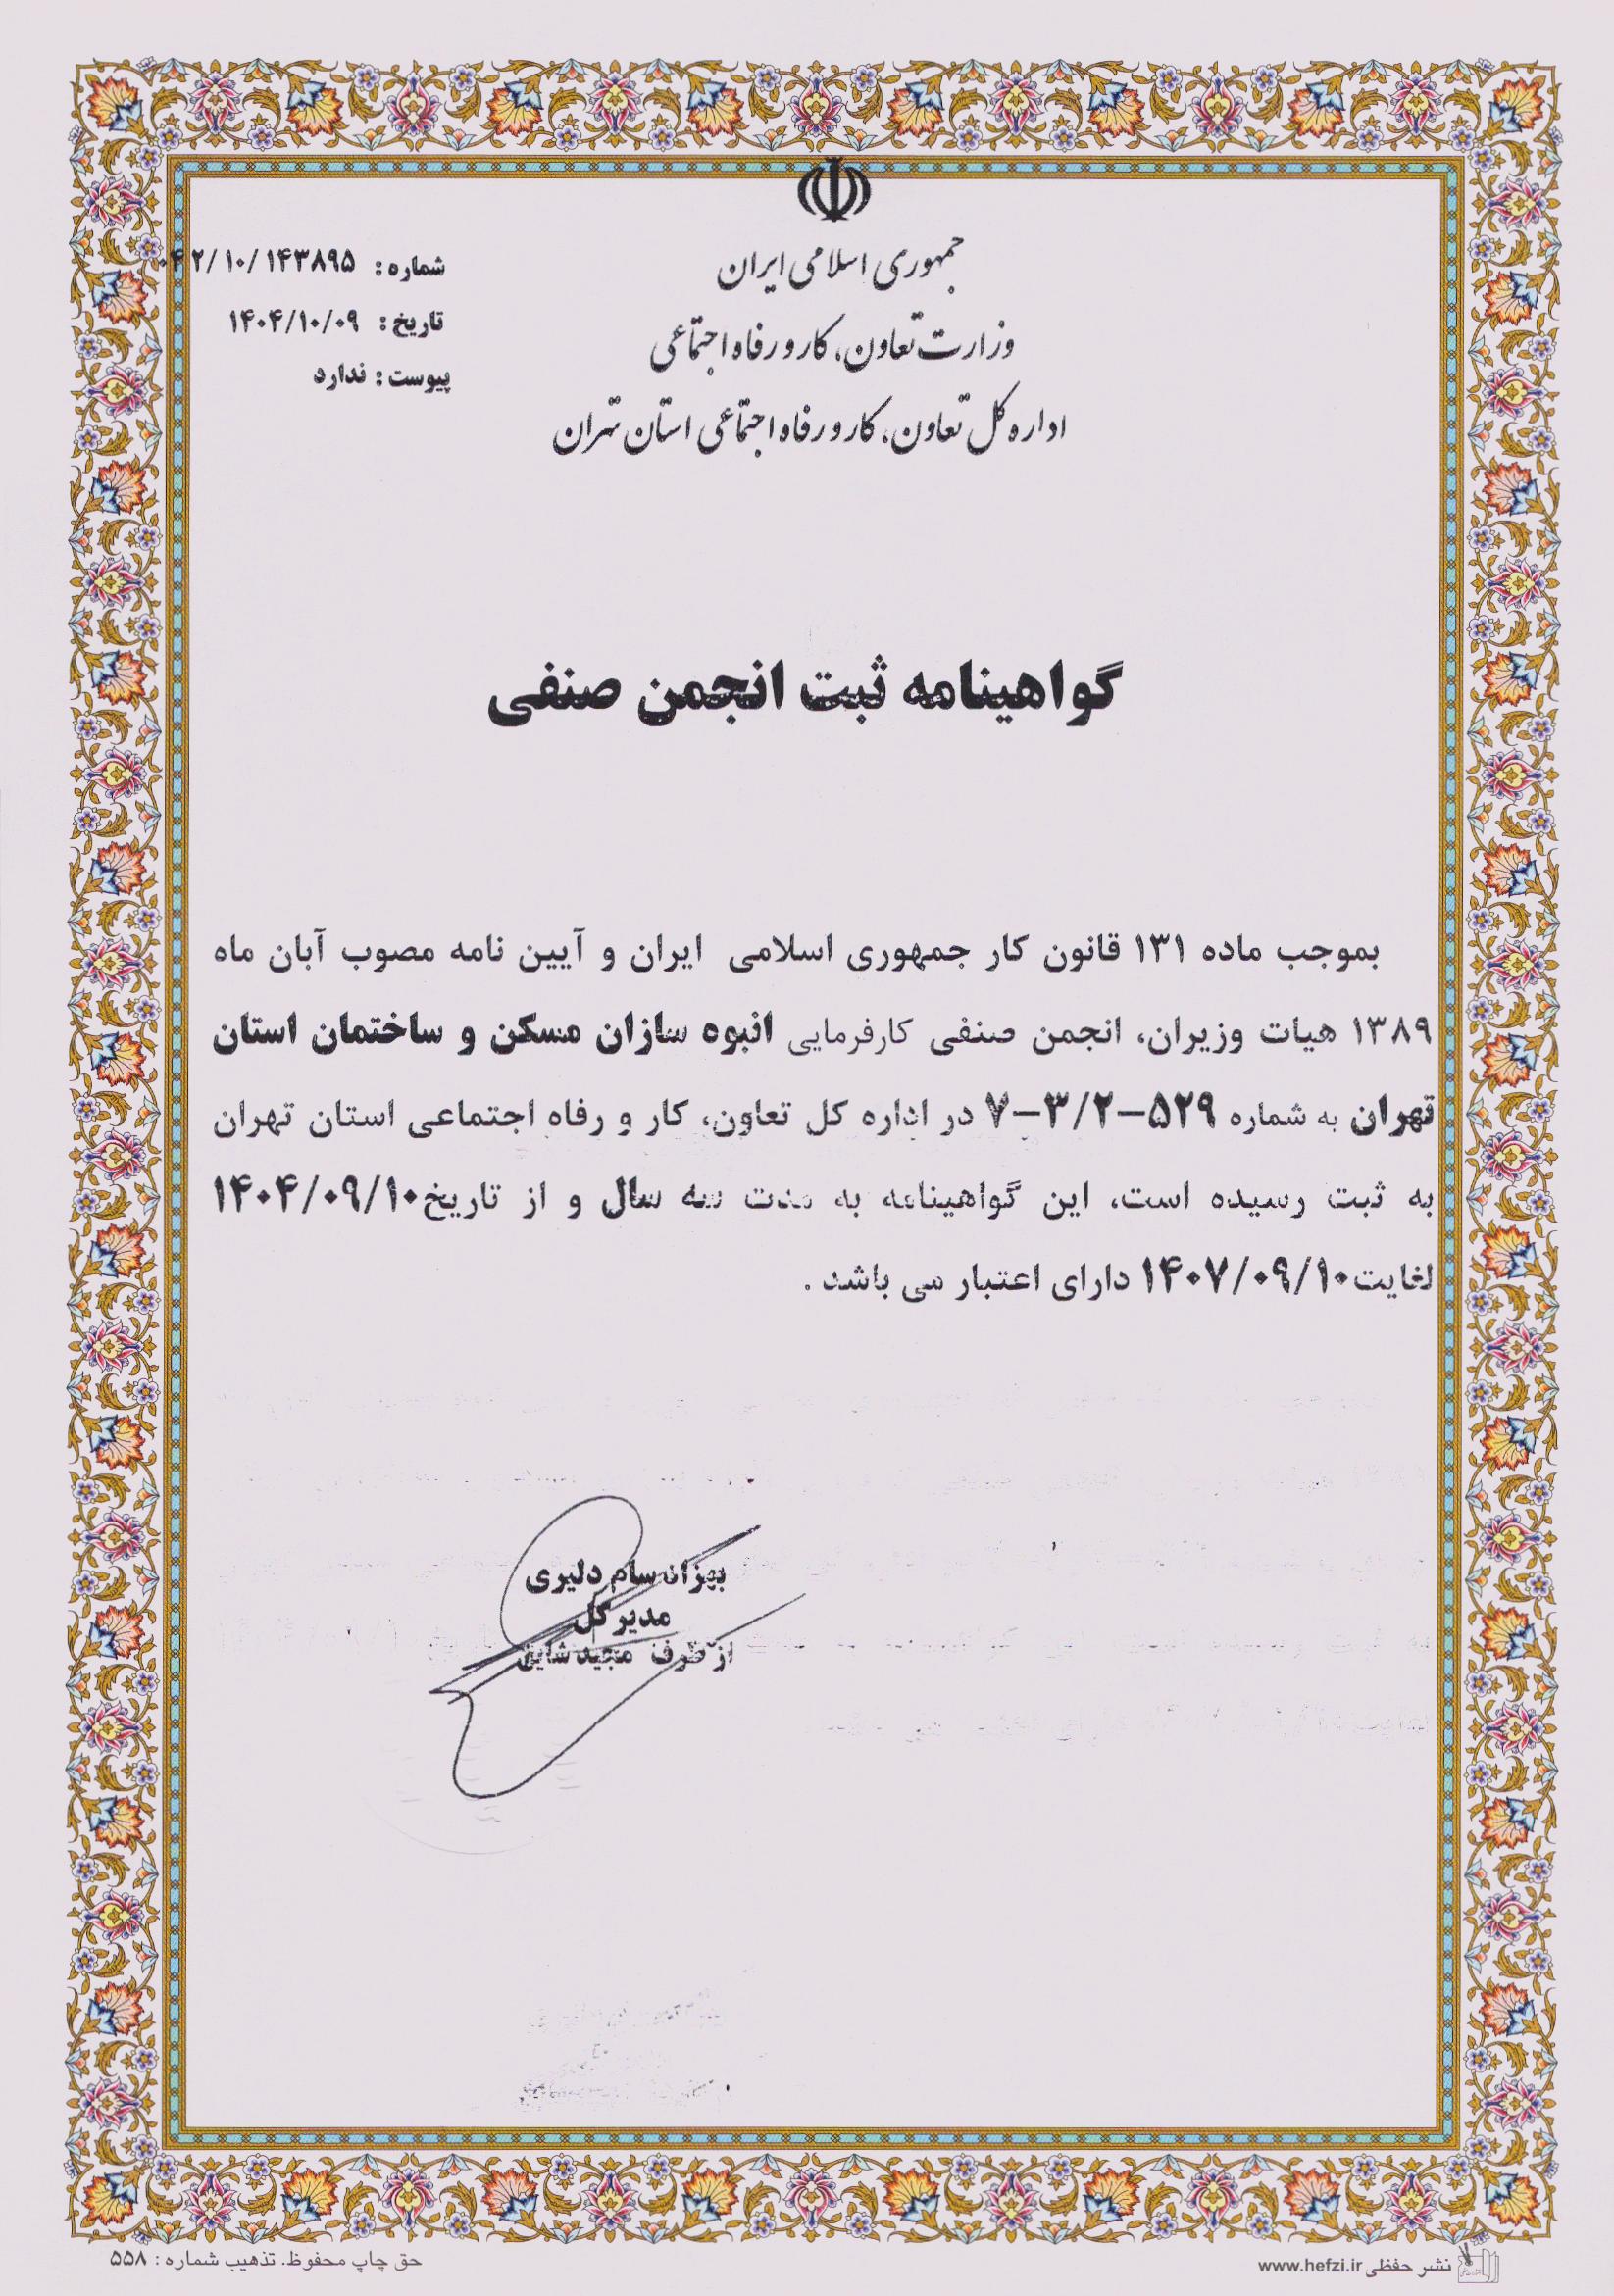 جمهوری اسلامی ایران
وزارت تعاون، کار و رفاه اجتماعی
اداره کل تعاون، کار و رفاه اجتماعی استان تهران
شماره : ۰۴۲/۱۰/۱۴۳۸۹۵
تاریخ : ۱۴۰۴/۱۰/۰۹
پیوست : ندارد
گواهینامه ثبت انجمن صنفی
بموجب ماده ۱۳۱ قانون کار جمهوری اسلامی ایران و آیین نامه مصوب آبان ماه
۱۳۸۹ هیات وزیران، انجمن صنفی کارفرمایی انبوه سازان مسکن و ساختمان استان
تهران به شماره ۵۲۹-۳/۲-۷ در اداره کل تعاون، کار و رفاه اجتماعی استان تهران
به ثبت رسیده است، این گواهینامه به مدت سه سال و از تاریخ۱۴۰۴/۰۹/۱۰
لغایت۱۴۰۷/۰۹/۱۰ دارای اعتبار می باشد .
سام دلیری
مدیر کل
از طرف مجید شایق
نشر حفظی www.hefzi.ir
حق چاپ محفوظ. تذهیب شماره : ۵۵۸